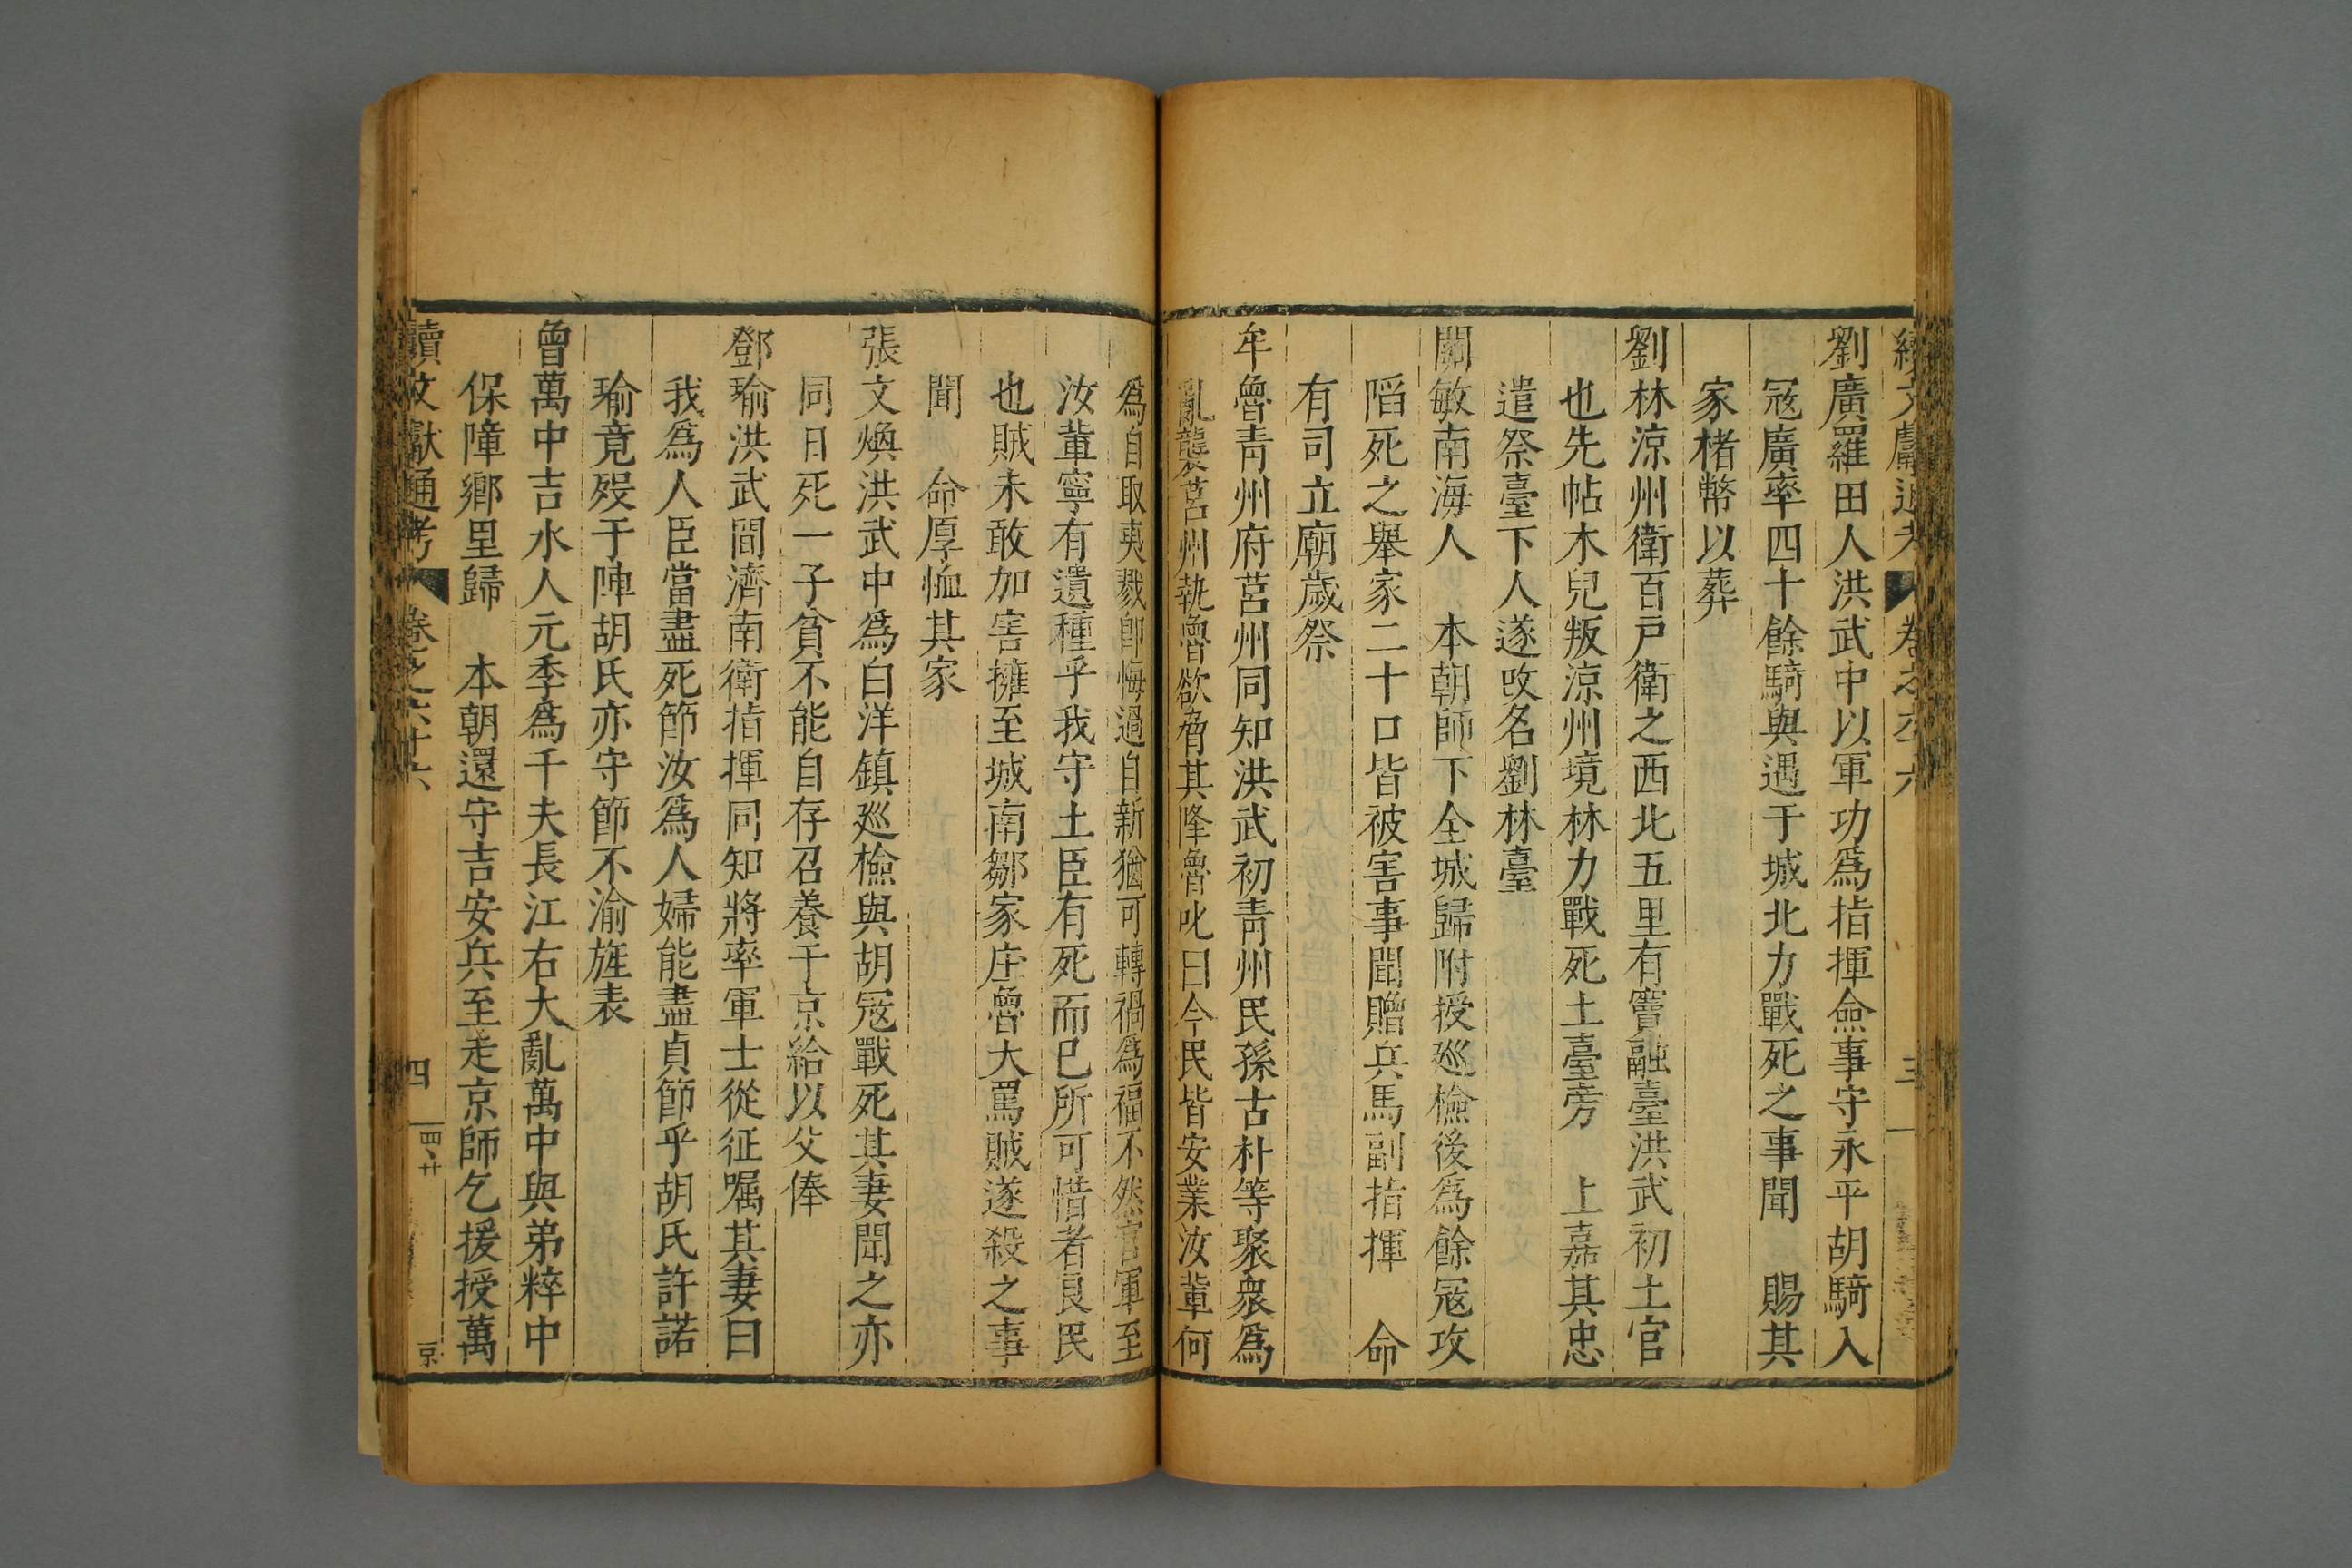 劉廣羅田人洪武中以軍功為指揮僉事守永平胡騎入
冦廣率四十餘騎與遇于城北力戰死之事聞 賜其
家楮幣以葬
劉林涼州衛百戸衛之西北五里有竇融臺洪武初土官
也先帖木兒叛涼州境林力戰死土臺旁 上嘉其忠
遣祭臺下人遂改名劉林臺
關敏南海人 本朝師下全城歸附授廵檢後為餘冦攻
䧟死之舉家二十口皆被害事聞贈兵馬副指揮 命
有司立廟歲祭
牟魯青州府莒州同知洪武初青州民孫古朴等聚衆為
亂襲莒州執魯欲脅其降魯叱曰今民皆安業汝軰何
為自取夷戮卽悔過自新猶可轉禍為福不然官軍至
汝軰寧有遺種乎我守土臣有死而已所可惜者良民
也賊未敢加害擁至城南鄒家庄魯大罵賊遂殺之事
聞 命厚恤其家
張文煥洪武中為白洋鎮廵檢與胡冦戰死其妻聞之亦
同日死一子貧不能自存召養于京給以父俸
鄧瑜洪武間濟南衛指揮同知將率軍士從征囑其妻曰
我為人臣當盡死節汝為人婦能盡貞節乎胡氏許諾
瑜竟殁于陣胡氏亦守節不渝旌表
曾萬中吉水人元季為千夫長江右大亂萬中與弟粹中
保障鄉里歸 本朝還守吉安兵至走京師乞援授萬
續文獻通考 卷之六十六 四